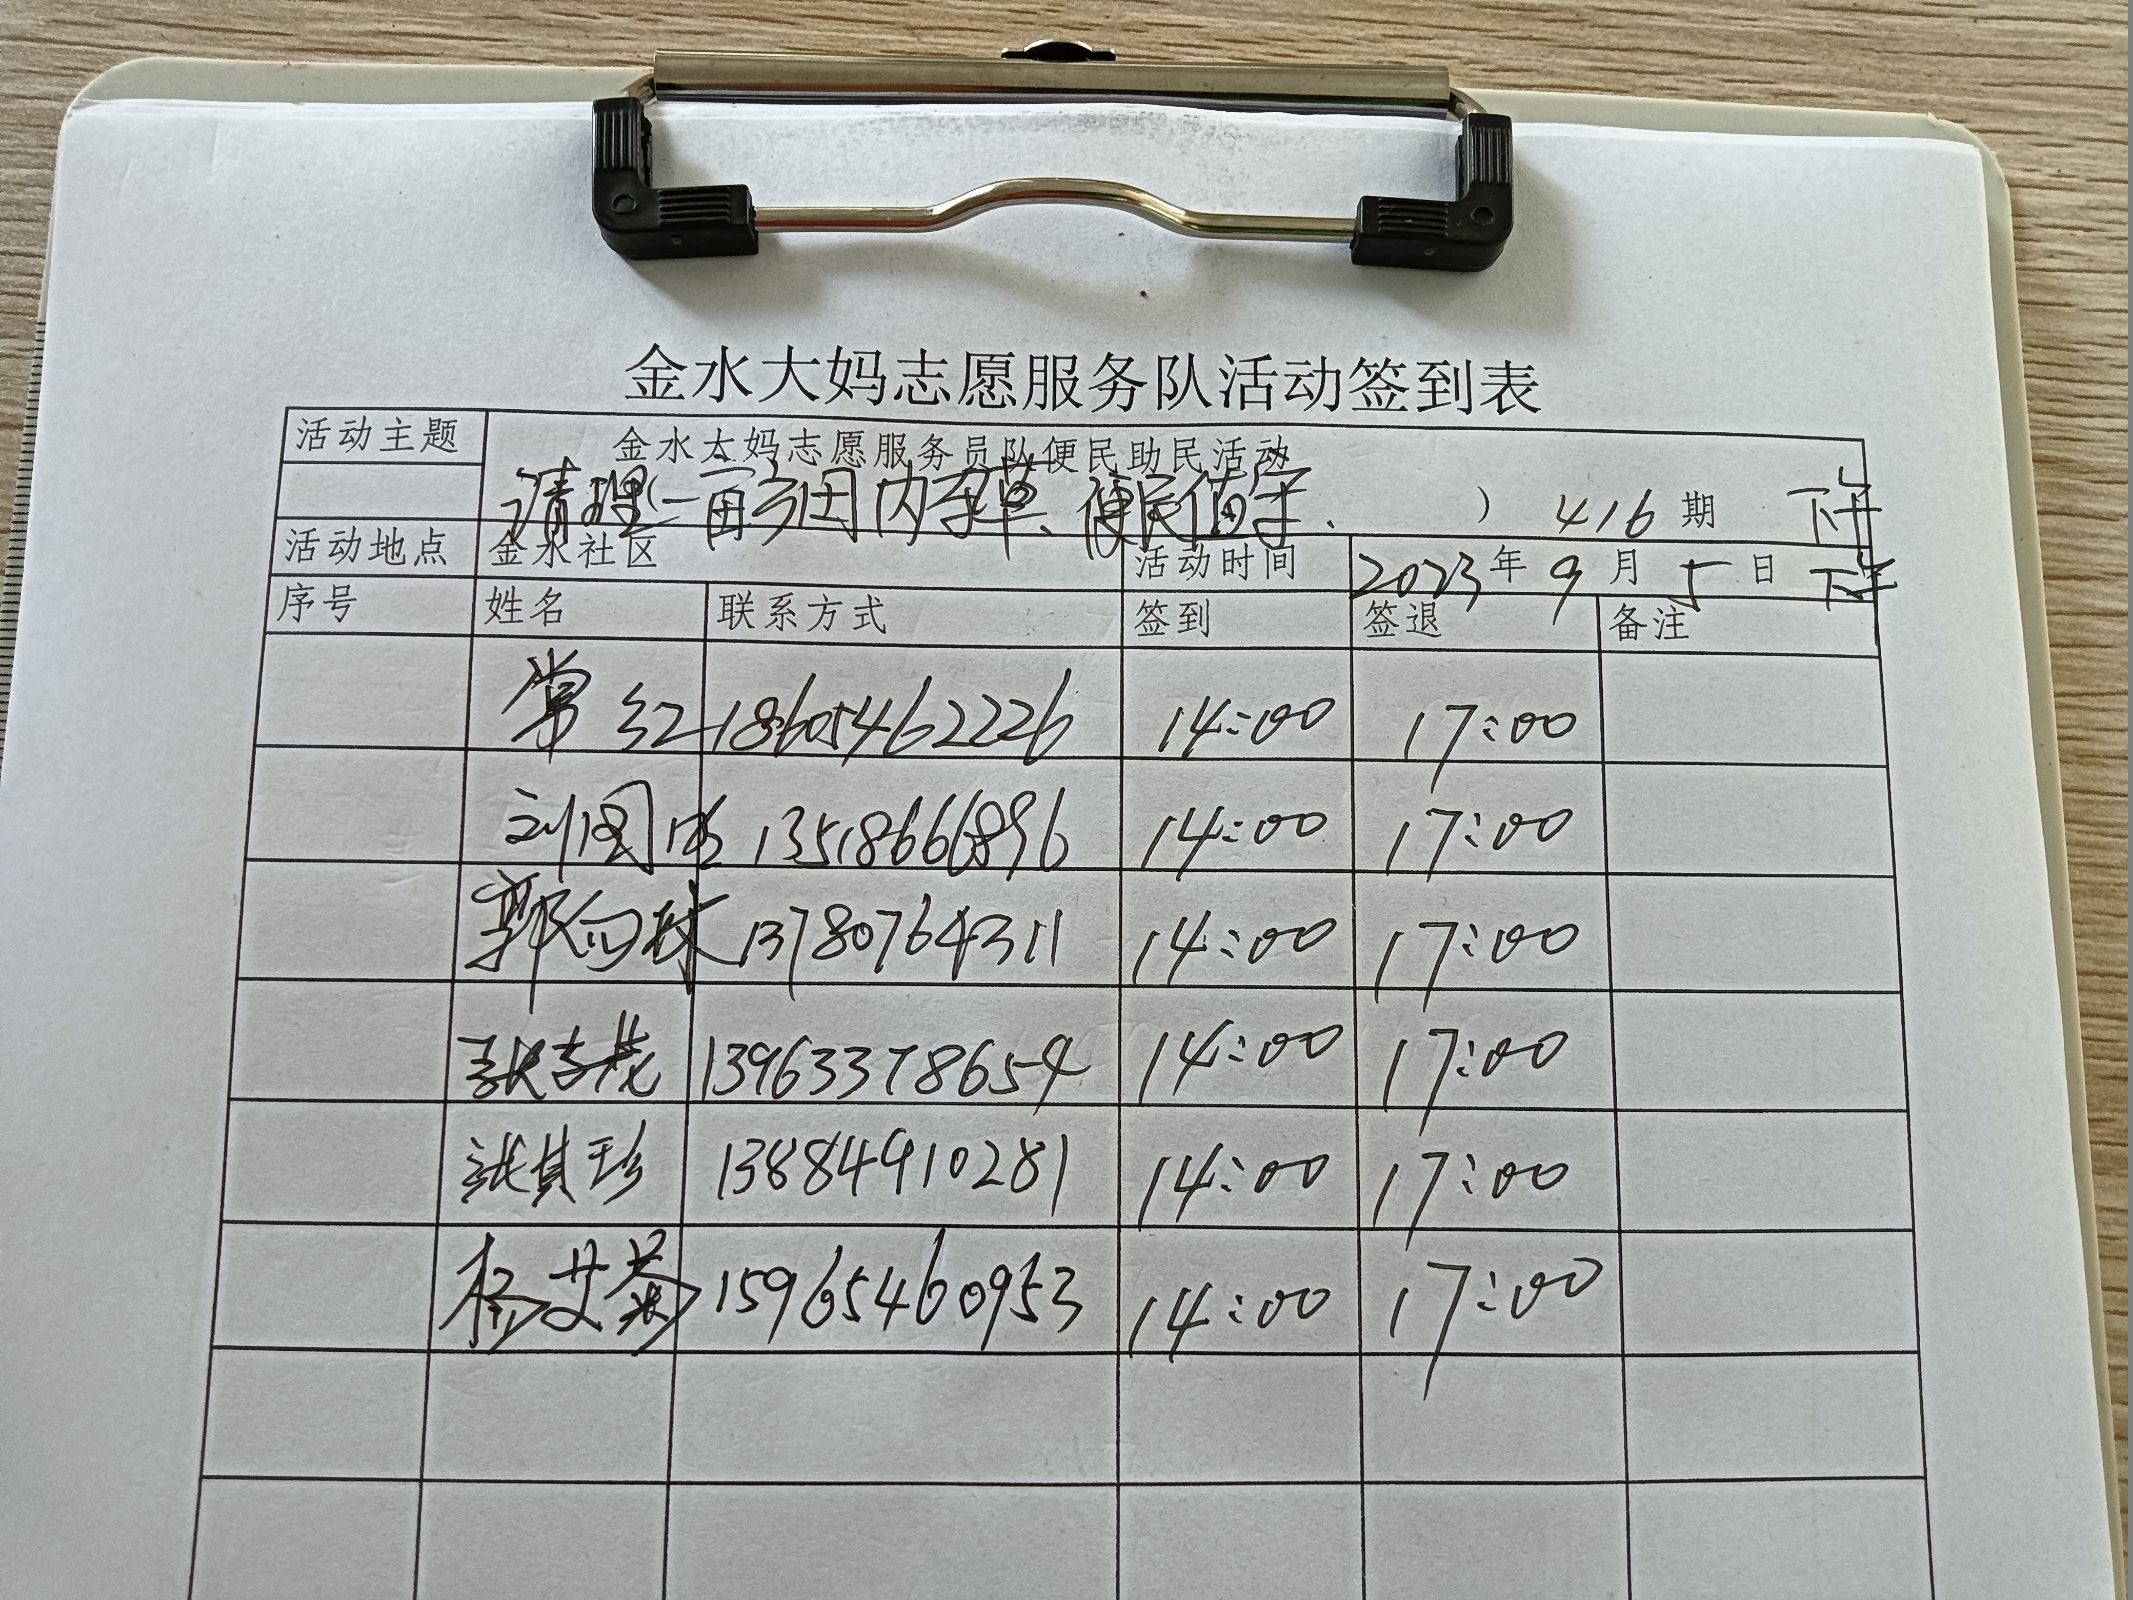 金水大妈志愿服务队活动签到表
活动主题 金水大妈志愿服务员队便民助民活动
清理(一亩方田内杂草、便民值守、 ) 416 期 下午
活动地点 金水社区 活动时间 2023 年 9 月 5 日 下午
序号 姓名 联系方式 签到 签退 备注
常红 18605462226 14:00 17:00
刘国 13518666896 14:00 17:00
郭向 13780764311 14:00 17:00
张吉花 13963378654 14:00 17:00
张其珍 13884910281 14:00 17:00
杨艾菊 15965460953 14:00 17:00